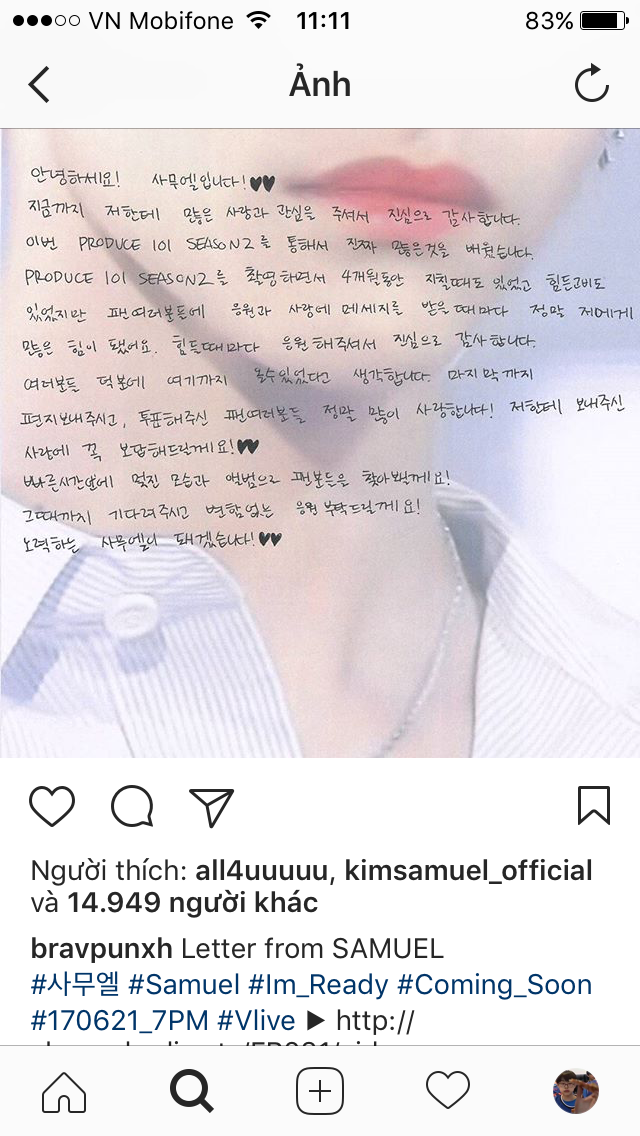 VN Mobifone 11:11 83%
Ảnh
안녕하세요! 사무엘입니다!♥♥
지금까지 저한테 많은 사랑과 관심을 주셔서 진심으로 감사합니다.
이번 PRODUCE 101 SEASON2를 통해서 진짜 많은것을 배웠습니다.
PRODUCE 101 SEASON2를 촬영하면서 4개월동안 지칠때도 있었고 힘든고비도
있었지만 팬여러분들에 응원과 사랑에 메세지를 받을때마다 정말 저에게
많은 힘이 됐어요. 힘들때마다 응원해주셔서 진심으로 감사합니다.
여러분들 덕분에 여기까지 올수있었다고 생각합니다. 마지막까지
편지보내주시고, 투표해주신 팬여러분들 정말 많이 사랑합니다! 저한테 보내주신
사랑에 꼭 보답해드릴께요!♥♥
빠른시간안에 멋진 모습과 앨범으로 팬분들을 찾아뵐게요!
그때까지 기다려주시고 변함없는 응원 부탁드릴게요!
노력하는 사무엘이 돼겠습니다!♥♥
Người thích: all4uuuuu, kimsamuel_official
và 14.949 người khác
bravpunxh Letter from SAMUEL
#사무엘 #Samuel #Im_Ready #Coming_Soon
#170621_7PM #Vlive ▶ http://